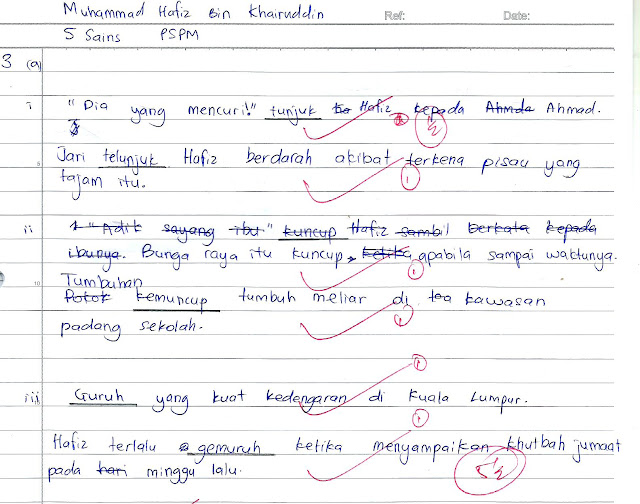 Muhammad Hafiz Bin Khairuddin Ref: Date:
5 Sains PSPM
3 (a)
i "Dia yang mencuri!" tunjuk Hafiz kepada Ahmad.
½
5 Jari telunjuk Hafiz berdarah akibat terkena pisau yang
1
tajam itu.
ii "Adik sayang ibu" kuncup Hafiz sambil berkata kepada
ibunya. Bunga raya itu kuncup ketika apabila sampai waktunya.
1
10 Tumbuhan
Pokok kemuncup tumbuh meliar di kawasan
1
padang sekolah.
1
iii Guruh yang kuat kedengaran di Kuala Lumpur.
1
Hafiz terlalu gemuruh ketika menyampaikan khutbah jumaat
pada hari minggu lalu.
5½